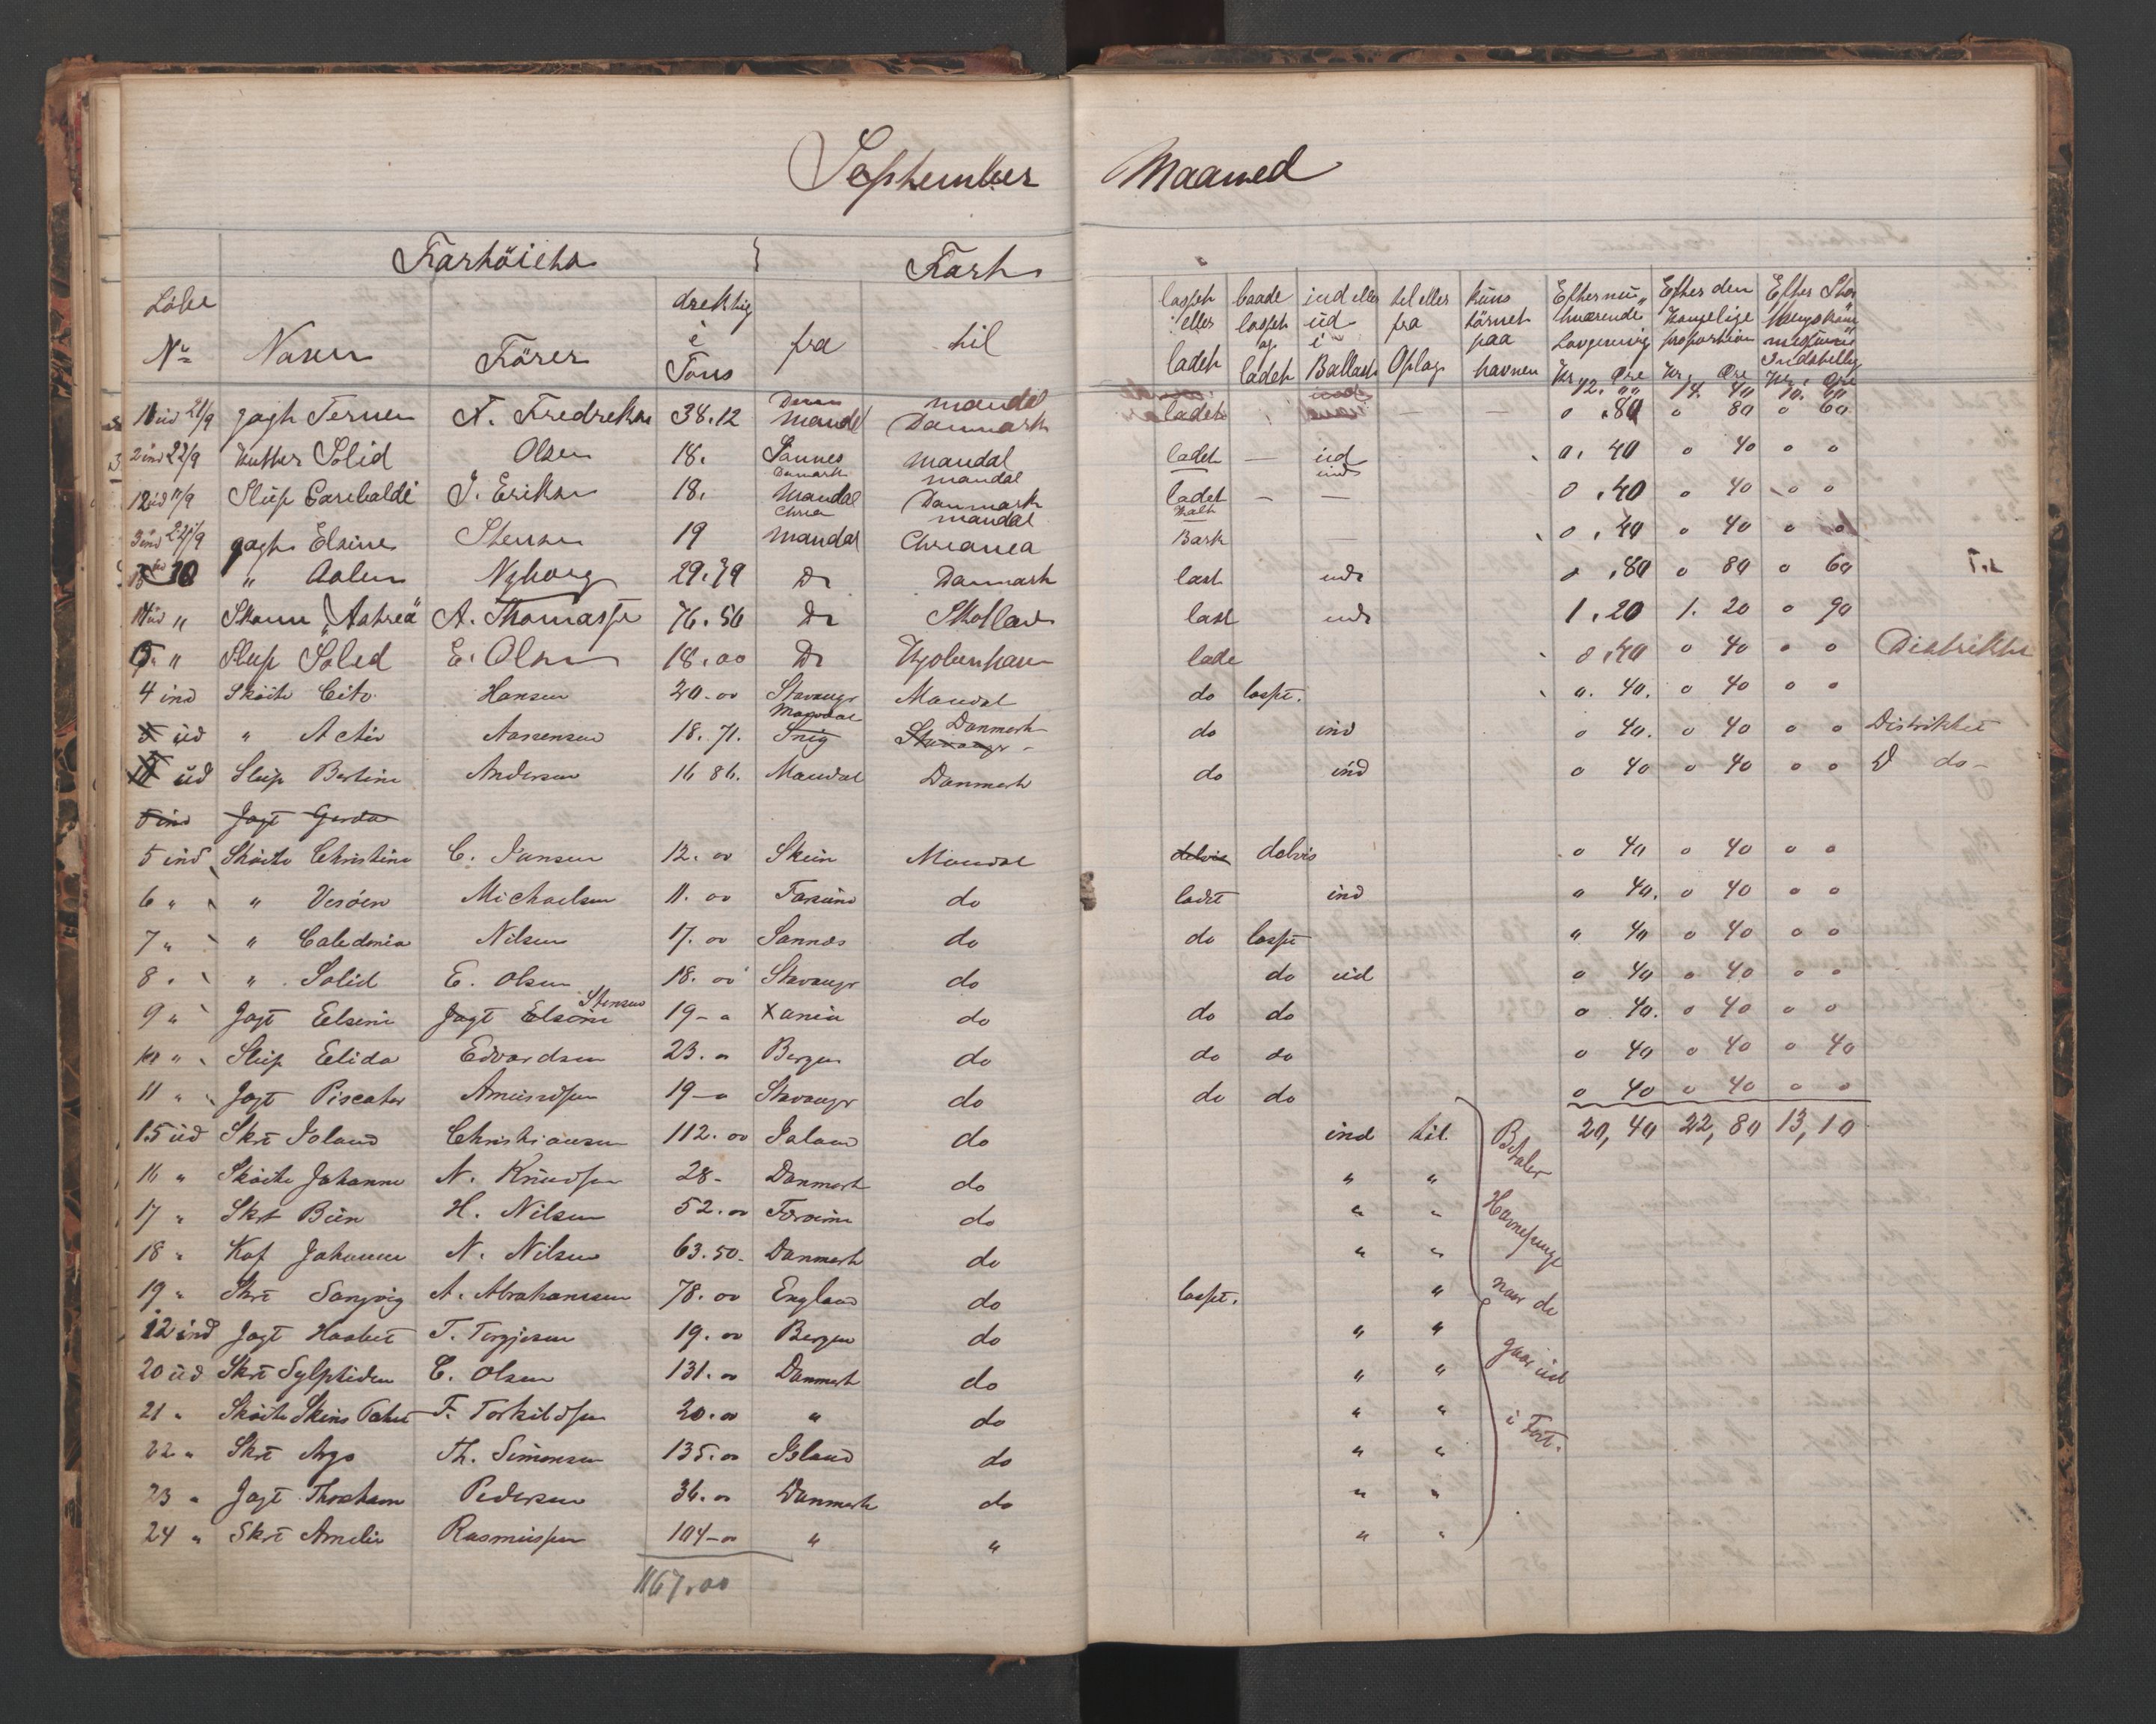 September Maaned
Farköiets Fart
Löbe
No Navn Förer drektig i Tons fra til losset eller ladet baade losset og ladet ind eller ud i Ballast til eller fra Oplag kuns törnet paa havnen Efter nu værende Lovgivning Kr. Øre Efter den Kongelige proposition Kr. Øre Indstilling Kr. Øre
12. 14. 40 10. 60
Danm mandal
11 ud 21/9 jagt Ternen N. Fredreksen 38.12 Mandal Danmark ladet — — 0.80 0 80 0 60
2 ind 22/9 Kutter Solid Olsen 18. Sannes Mandal ladet — ud 0.40 0 40 0 0
Danmark mandal ind
12 ud 11/9 Slup Garebaldi J. Eriksen 18. Mandal Danmark ladet — — 0.40 0 40 0 0
Chria mandal
3 ind 22/9 jagt Elsine Stensen 19 Mandal Chreania Bark — 0.40 0 40 0 0
" Nyborg 29.79 Do Danmark last ud 0.80 0 80 0 60
14 ud " Skonn "Astrea" A. Thomasse 76.56 Do Skotland last ud 1.20 1.20 0 90
15 " Slup Soled E. Olsen 18.00 Do Kjobenhavn lade 0.40 0 40 0 0 Distriktet
4 ind Skøite Cito Hansen 20-00 Stavanger Mandal do losset. 0.40. 0 40 0 0
Mandal Danmark
ud " Activ Aanensen 18.71. Snig Stavanger do ind 0 40. 0 40 0 0 Distriktet
ud Slup Bertine Andersen 16 86. Mandal Danmark do ind 0 40 0 40 0 0 do-
5 ind Jagt Gerda
5 ind Skøite Christine C. Jansen 12.00 Skein Mandal delvis delvis 0 40 0 40 0 0
6 " " Michaelsen 11.00 Farsund do ladet ind " 40. 0 40 0 0
7 " " Caledonia Nilsen 17.00 Sannæs do do losset " 40 0 40 0 0
8 . " Solid E. Olsen 18.00 Stavanger do do ud 0 40 0 40 0 0
Stensen
9 " Jagt Elseni Jagt Elseni 19-0 Xania do do do 0 40. 0 40 0 0
10 " Slup Elida Edvardsen 23.0 Bergen do do do 0 40 0 40 0 40
11 " Jagt Piscator Amundsen 19-0 Stavanger do do do 0 40 0 40 0 0
15 ud Skrt Island Christiansen 112.00 Island do ind til. 20,40 22,80 13,10
16 " Skøite Johanne N. Knudsen 28- Danmark do " "
17 " Skrt H. Nilsen 52.00 do " "
18 " Kof Johanne N. Nilsen 63.50- Danmark do " "
19 " Skrt Sangvig A. Abrahamsen 78.00 England do losset. "
12 ind Jagt Haabet T. Tergjesen 19.00 Bergen do " "
20 ud Skrt Sylphiden C. Olsen 131.00 Danmark do " "
21 " Skøite F. Torkildsen 20.00 " do " "
22 " Skrt Argo Th. Simonsen 135.00 Island do " "
23 " Jagt Pedersen 36.00 Danmark do " "
24 " Skrt Amelie Rasmussen 104-00 " " " "
1167.00
Betaler
Havnepenge
naar de
gaar ud
i Fart.